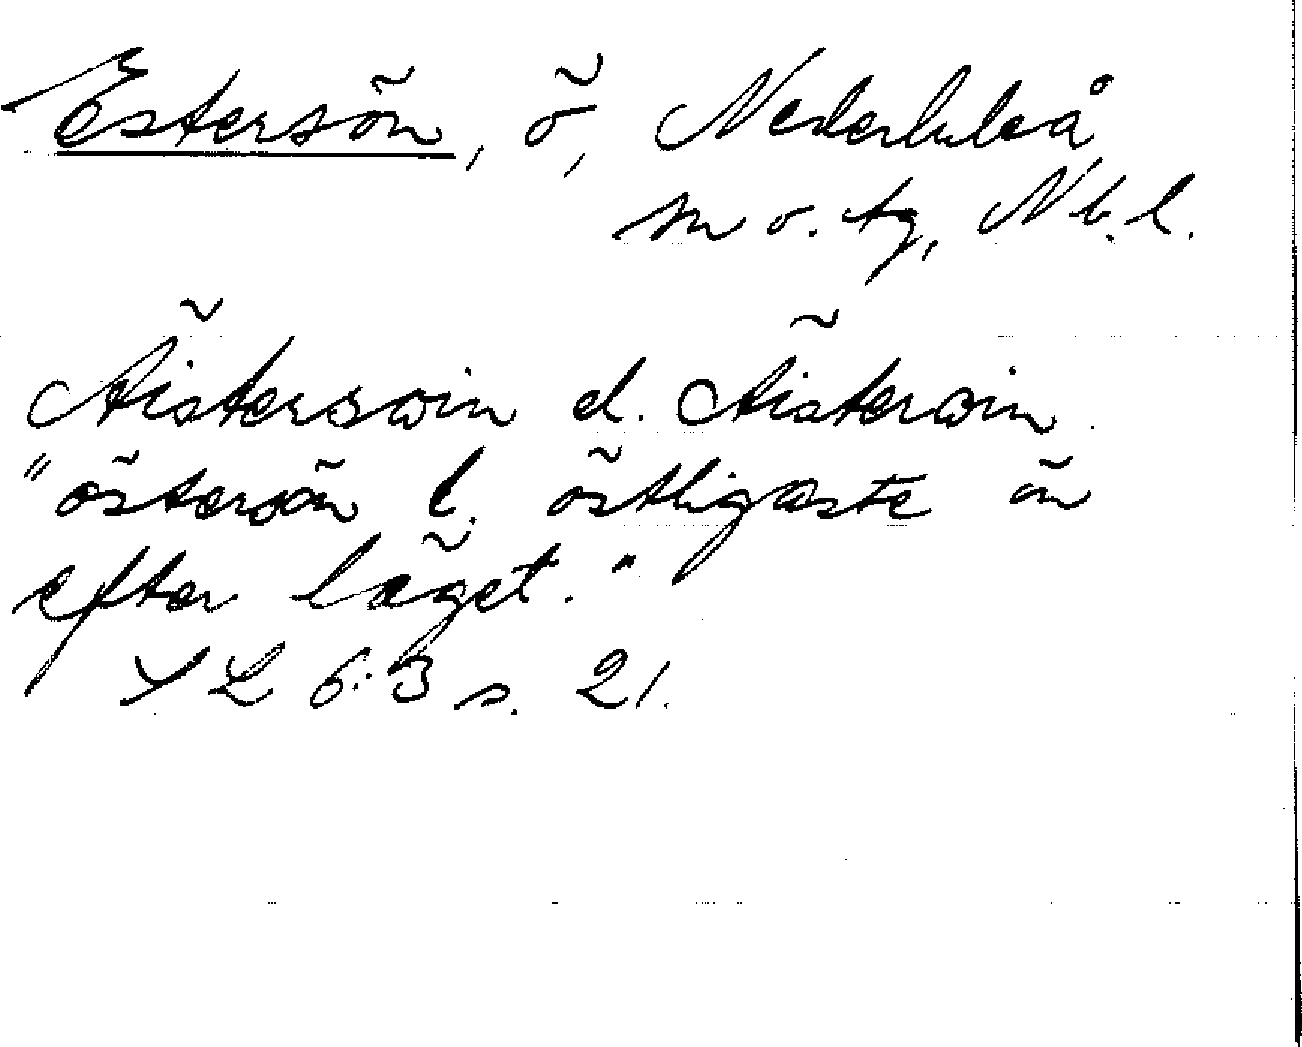 Estersön, ö, Nederluleå
sn o. tg, Nb. l.
Äistersoin el. Äisteroin
"östersön l. östligaste ön
efter läget."
SL 6:3 s. 21.